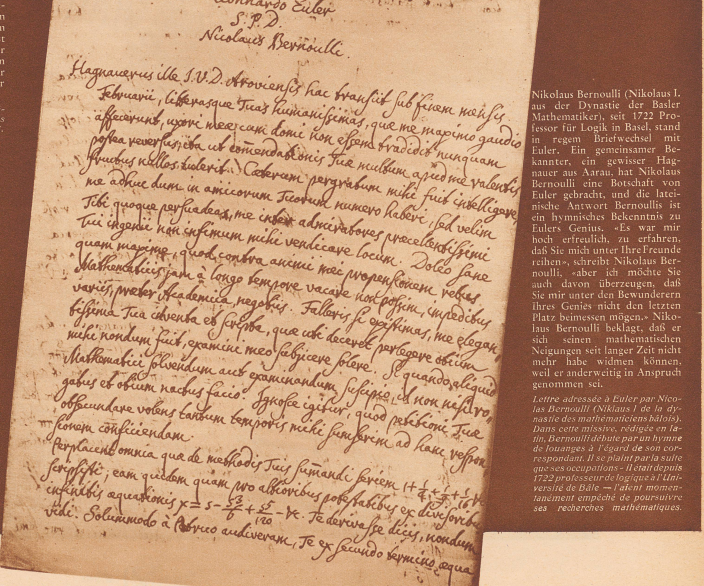 Leonhardo Euler
S. P. D
Nicolaus Bernoulli.
Hagnauerus ille J.U.D. Aroviensis hac transiit sub finem mensis
Februarii, litterasque Tuas humanissimas, quae me maximo gaudio
affecerunt, uxori meae cum domi non essem tradidit nunquam
postea reversus, ita ut comendationis Tuae multum apud me valentis
fructus nullos tulerit. Caeterum pergratum mihi fuit intelligere,
me adhuc dum in amicorum Tuorum numero haberi sed velim
Tibi quoque persuadeas, me inter admiratores praecellentissimi
Tui ingenii non infimum mihi vendicare locum. Doleo sane
quam maxime, quod contra animi mei propensionem rebus
Mathematicis jam à longo tempore vacare non possim, impeditus
variis, praeter Academica, negotiis. Falleris si existimas, me elegan,
tissima Tua inventa et scripta, quae uti deceret perlegere otium
mihi nondum fuit, examini meo subjicere solere. Si quando aliquid
Mathematici solvendum aut examinandum suscipio, id non nisi ro,
gatus et otium nactus facio. Ignosce igitur, quod petitioni Tuae
obsecundare volens tantum temporis mihi sumserim ad hanc respon
sionem conficiendam.
Perplacent omnia quae de methodis Tuis sumandi seriem 1+1/4+1/9+1/16 &c
scripsisti, eam quidem quam pro altioribus potestatibus ex divisoribus
infinitis aequationis x = s - s3/6 + s5/120 - &c. Te derivasse dicis, nondum
vidi. Solummodo à audiveram, Te ex secundo termino aequa
Nikolaus Bernoulli (Nikolaus I.
aus der Dynastie der Basler
Mathematiker), seit 1722 Pro-
fessor für Logik in Basel, stand
in regem Briefwechsel mit
Euler. Ein gemeinsamer Be-
kannter, ein gewisser Hag-
nauer aus Aarau, hat Nikolaus
Bernoulli eine Botschaft von
Euler gebracht, und die latei-
nische Antwort Bernoullis ist
ein hymnisches Bekenntnis zu
Eulers Genius. «Es war mir
hoch erfreulich, zu erfahren,
daß Sie mich unter Ihre Freunde
reihen», schreibt Nikolaus Ber-
noulli, «aber ich möchte Sie
auch davon überzeugen, daß
Sie mir unter den Bewunderern
Ihres Genies nicht den letzten
Platz beimessen mögen.» Niko-
laus Bernoulli beklagt, daß er
sich seinen mathematischen
Neigungen seit langer Zeit nicht
mehr habe widmen können,
weil er anderweitig in Anspruch
genommen sei.
Lettre adressée à Euler par Nico-
las Bernoulli (Niklaus I de la dy-
nastie des mathématiciens bâlois).
Dans cette missive, rédigée en la-
tin, Bernoulli débute par un hymne
de louanges à l'égard de son cor-
respondant. Il se plaint par la suite
que ses occupations – il était depuis
1722 professeur de logique à l'Uni-
versité de Bâle – l'aient momen-
tanément empêché de poursuivre
ses recherches mathématiques.